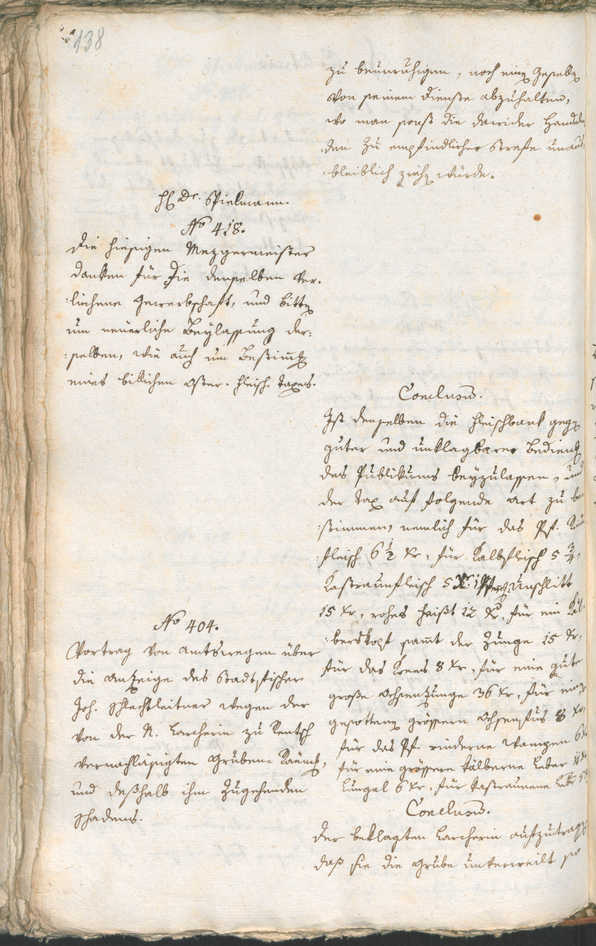 138
zu beunruhigen, noch eine Gesellen
von seinem Dienste abzuhalten,
wo man sonst die dawider Handeln
den zu empfindlicher Strafe unaus
bleiblich ziehen würde.
H. Dr. Spielmann.
No 418.
Die hiesigen Mezgermeister
danken für die denselben ver
liehene Gewerbschaft, und bitten
um neuerliche Beylassung der
selben, wie auch um Bestimmung
eines billichen Oster-Fleisch Taxes.
Conclusum.
Ist denselben die Fleischbank gegen
guter und unklagbarer Bedienung
des Publikums beyzulassen, und
der Tax auf folgende Art zu be
stimmen, nemlich für das Pf.
fleisch 6 1/2 Kr, für Kalbfleisch 5 3/4
Kastraunfleisch 5 Unschlitt
15 Kr, rohes 12 Kr, für ein Käl
berskopf samt der Zunge 15 Kr,
für das Krees 8 Kr, für eine gute
große Ochsenzunge 36 Kr, für einen
gesottenen grössern Ochsenfus 8 Kr
für das Pf. rinderne Wampen 6 Kr
für eine grössere kälberne Leber
Lungel 6 Kr, für kastraunene
No 404.
Vortrag von Amtswegen über
die Anzeige des Stadttischer
Joh. Schlechtleitner wegen der
von der N. Larcherin zu Rentsch
vernachläßigten Gruben-Räumung,
und deßhalb ihm zugehenden
Schadens.
Conclusum.
Der beklagten Larcherin aufzutragen
daß sie die Grube unverweilt so